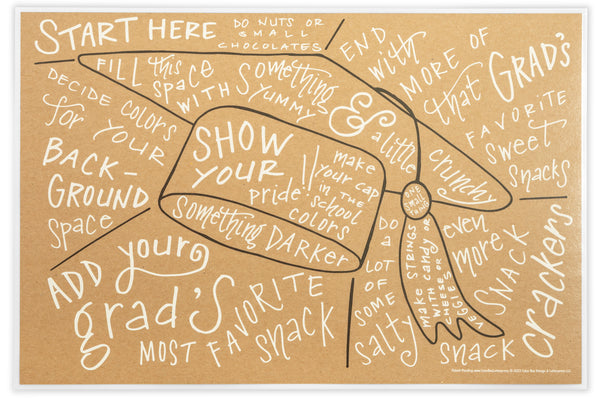 START HERE
DO NUTS OR
SMALL
CHOCOLATES
FILL this
space
WITH
Something
YUMMY
&
a little
crunchy
END
with
MORE OF
that GRAD'S
FAVORITE
sweet
snacks
DECIDE colors
for YOUR
BACK-
GROUND
space
SHOW
YOUR
pride!!
make
your cap
IN THE
school
colors
Something DARKER
ONE
small
ADD your
grad's
MOST FAVORITE
snack
DO
A
LOT
OF
SOME
salty
make STRINGS
WITH candy OR
CHEESE OR
VEGGIES
even
more
SNACK
snack
crackers